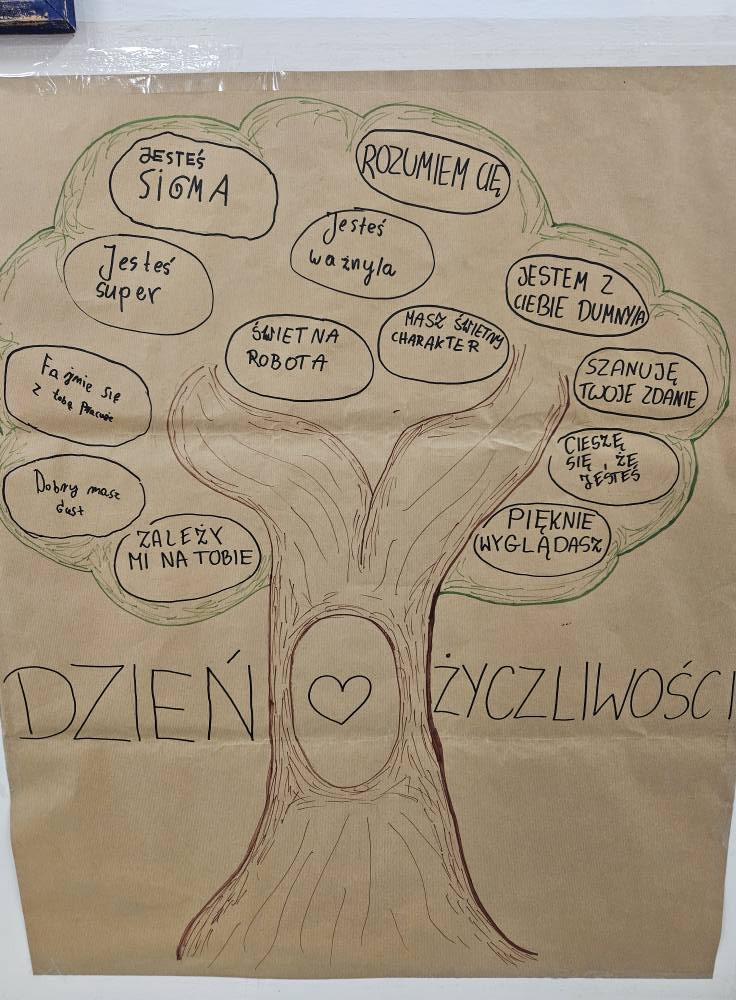 JESTEŚ
SIGMA
ROZUMIEM CIĘ
Jesteś
ważny/a
Jesteś
super
JESTEM Z
CIEBIE DUMNY/A
ŚWIETNA
ROBOTA
MASZ ŚWIETNY
CHARAKTER
Fajnie się
z tobą pracuje
SZANUJĘ
TWOJE ZDANIE
CIESZĘ
SIĘ, ŻE
JESTEŚ
Dobry masz
Gust
ZALEŻY
MI NA TOBIE
PIĘKNIE
WYGLĄDASZ
DZIEŃ ŻYCZLIWOŚCI